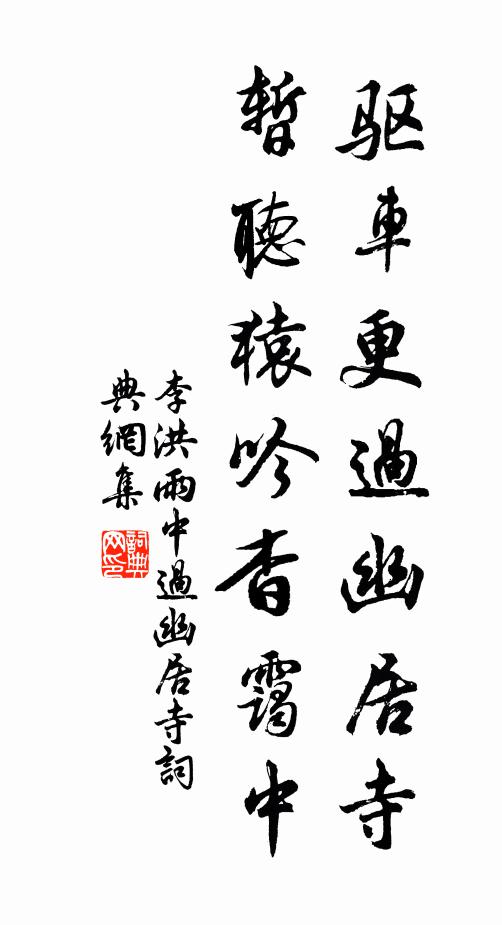 驱車更過幽居寺
暫聽猿吟杳靄中
李洪雨中過幽居寺詞
典網集
詞典网印